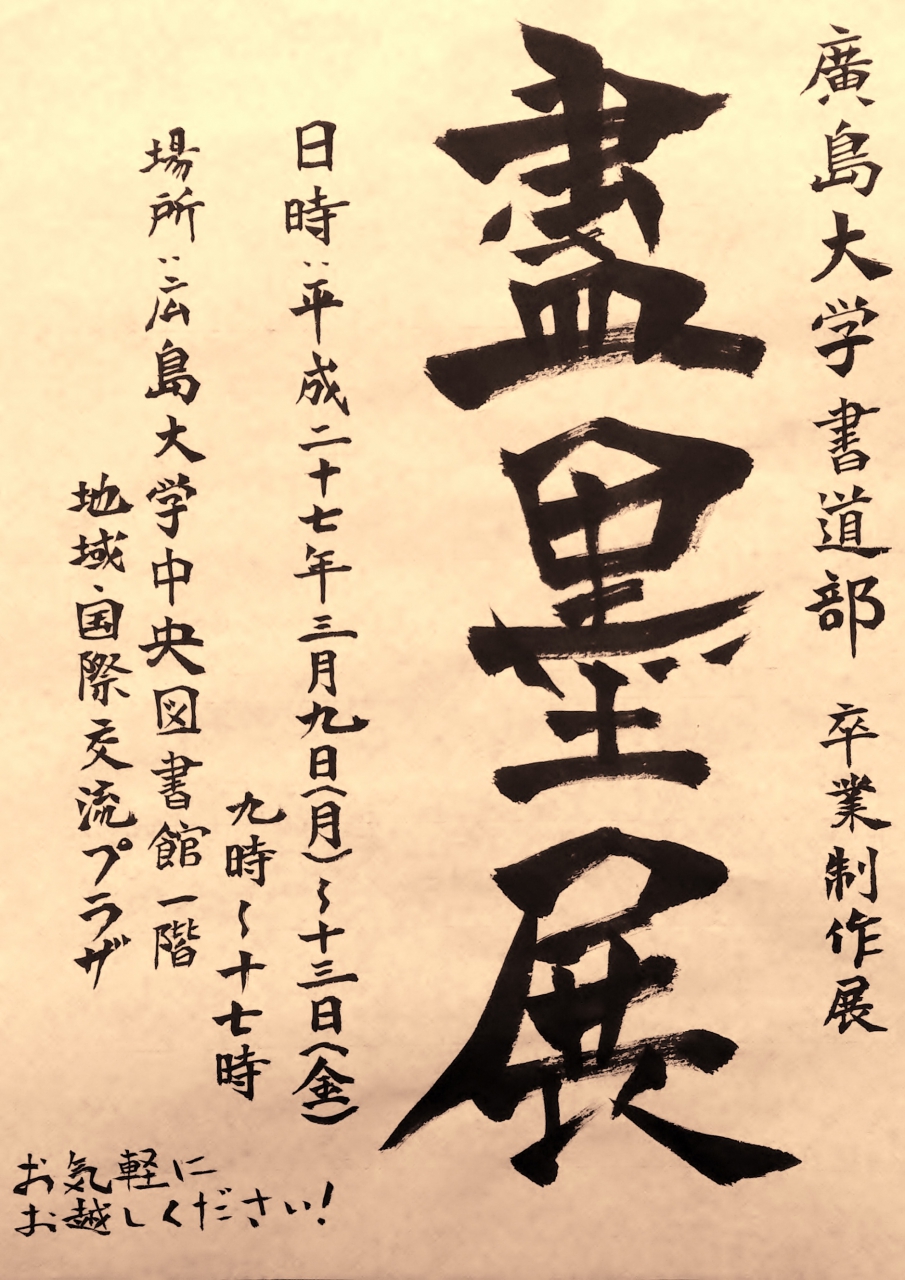 廣島大学書道部 卒業制作展
盡墨展
日時:平成二十七年三月九日(月)~十三日(金)
九時~十七時
場所:広島大学中央図書館一階
地域国際交流プラザ
お気軽に
お越しください!